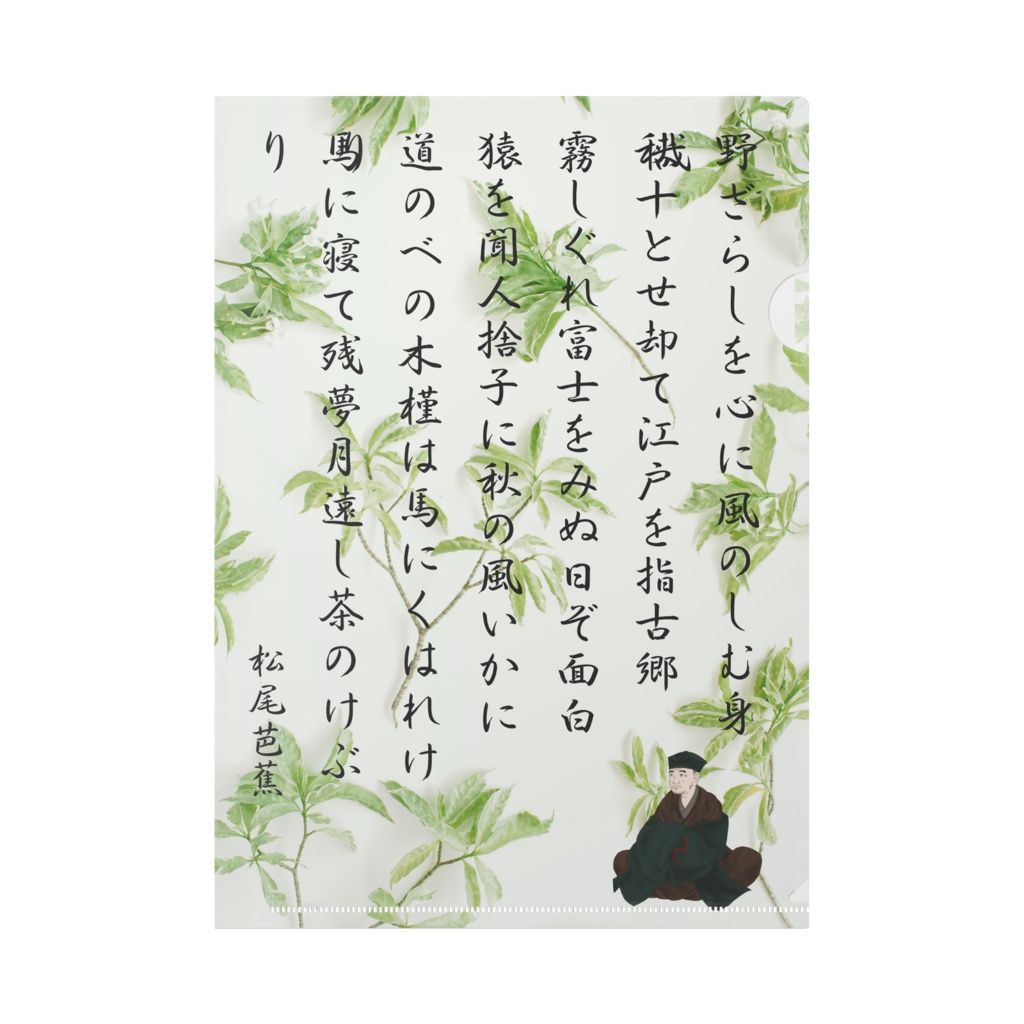 野ざらしを心に風のしむ身
穐十とせ却て江戸を指古郷
霧しぐれ富士をみぬ日ぞ面白
猿を聞人捨子に秋の風いかに
道のべの木槿は馬にくはれけ
り
馬に寝て残夢月遠し茶のけぶ
り
松尾芭蕉